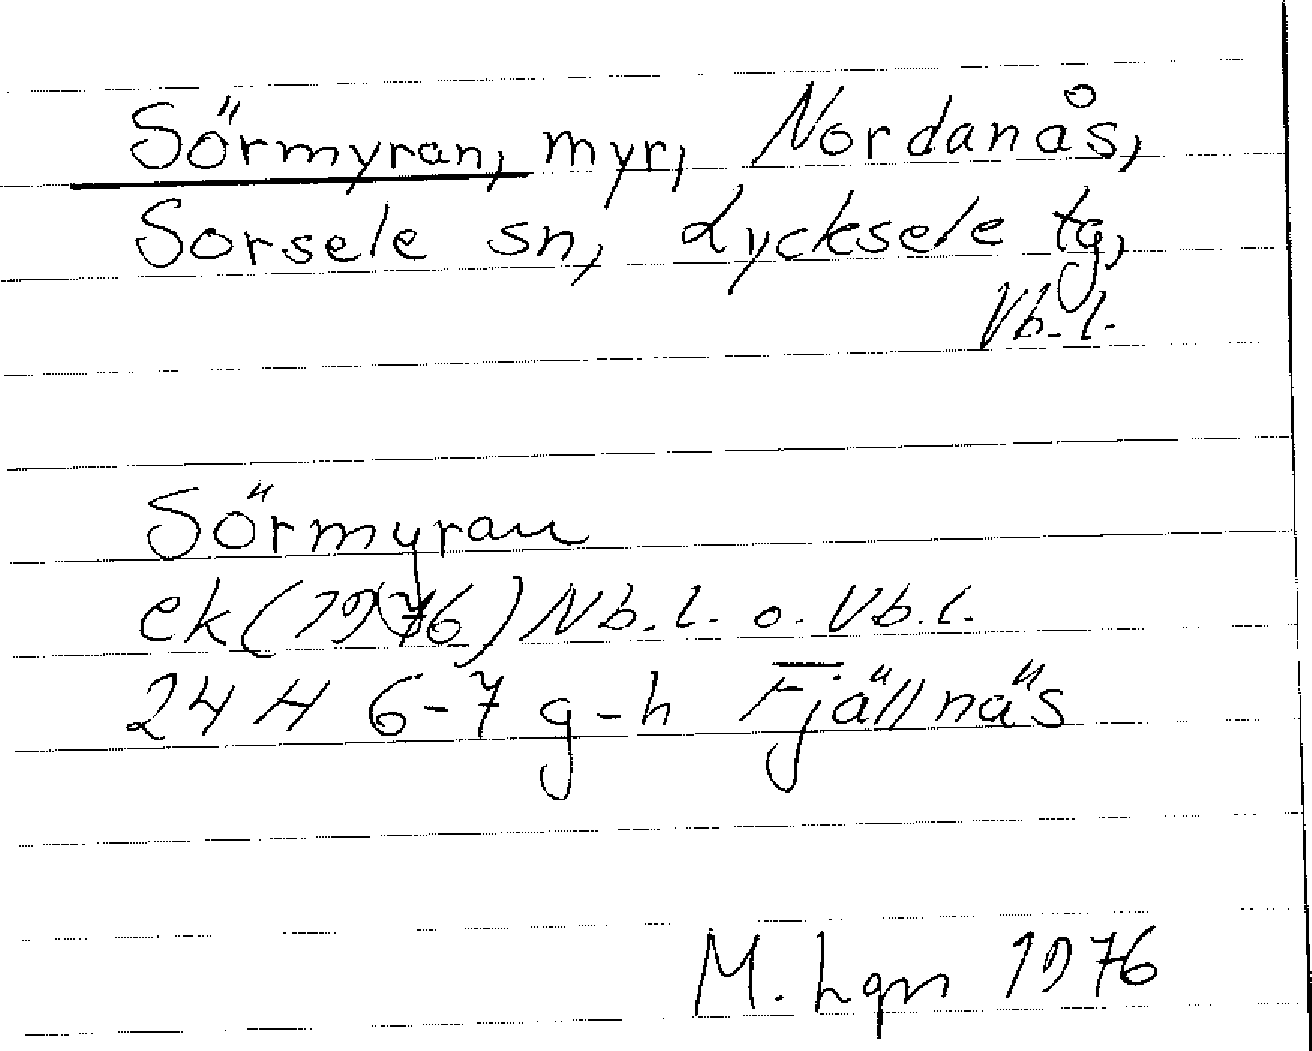 Sörmyran, myr, Nordanås,
Sorsele sn, Lycksele tg,
Vb.l.
Sörmyran
ek (1976) Nb.l. o. Vb.l.
24 H 6-7 g-h Fjällnäs
M. hqn 1976